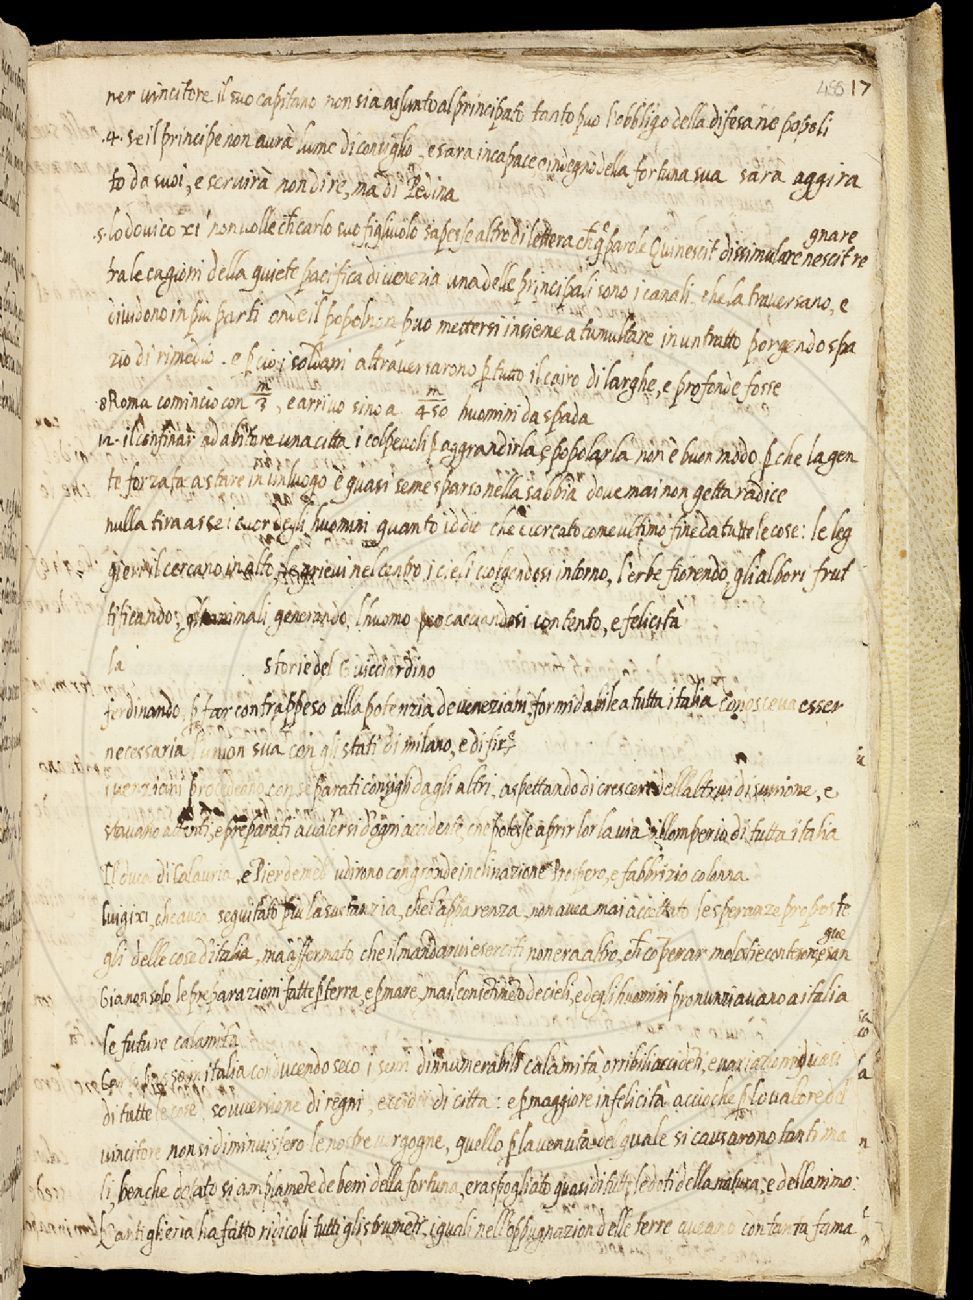 458 17
per vincitore il suo capitano non sia assunto al principato tanto puo l'obbligo della difesa ne popoli
.4. se il principe non aurà lume di consiglio, e sara incapace e indegno della fortuna sua sara aggira
to da suoi, e servirà non di re, ma di Pedina
.5. lodovico xi non volle ch carlo suo figliuolo sapesse altro di lettera ch qe parole Qui nescit dissimulare nescit re
gnare
tra le cagioni della quiete pacifica di venezia una delle principali sono i canali che la traversano, e
dividono in più parti onde il popol non può mettersi insieme a tumultare in un tratto porgendo spa
zio di rimedio. e p ciò i soldani attraversarono p tutto il cairo di larghe, e profonde fosse
.8 Roma cominciò con m/3, e arrivo sino a m/450 huomini da spada
12. il confinar ad abitare una citta i colpevoli p aggrandirla, e popolarla non è buon modo p che la gen
te forzata a stare in un luogo è quasi seme sparso nella sabbia dove mai non getta radice
nulla tira a se i cuor degli huomini quanto iddio che è cercato come ultimo fine da tutte le cose: le leg
gieri il cercano in alto le grievi nel centro i cieli volgendosi intorno, l'erbe fiorendo, gli albori frut
tificando: animali generando, l'huomo procacciandosi contento, e felicità
la Storie del Guicciardino
ferdinando p far contrappeso alla potenzia de veneziani, formidabile a tutta italia conosceva esser
necessaria l'union sua con gli stati di milano, e di fire
i veneziani procedeano con separati consigli dagli altri, aspettando di crescere dell'altrui disunione, e
stavano attenti, e preparati a valersi d'ogni accidente, che potesse aprir lor la via all'imperio di tutta italia
Il duca di Calauria, e Pier de med udirono con grande inclinazione Prospero, e fabbrizio colonna.
luigi xi, che avea seguitato più la sustanzia, che l'apparenza non avea mai accettato le speranze proposte
gli delle cose d'italia, ma affermato, che il mandarvi eserciti non era altro, ch coperar molestie con tesoro, e san
gue
Gia non solo le preparazioni fatte p terra, e p mare, ma il consentimto de cieli, e degli huomini pronunziavano a italia
le future calamità
in italia conducendo seco i semi d'innumerabili calamità, orribili accideti, e variazioni quasi
di tutte le cose, sovversione di regni, eccidii di citta: e p maggiore infelicità accioche p lo valore del
vincitore non si diminuissero le nostre vergogne, quello p la venuta del quale si causarono tanti ma
li, benche dotato si ampiamete de beni della fortuna, era spogliato quasi di tutte le doti della natura, e dell'animo:
L'artiglieria ha fatto ridicoli tutti gli strumeti, i quali nell'espugnazion delle terre aveano con tanta fama